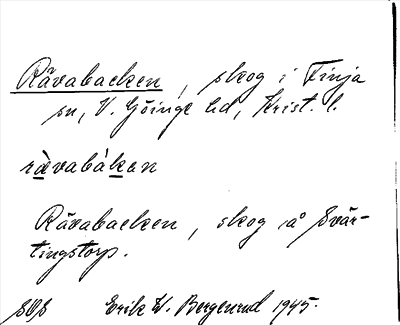 Rävabacken, skog i Finja
sn, V. Göinge hd, Krist. l.
rä̀vabákan
Rävabacken, skog å Svär-
tingstorp.
Erik W. Bergenrud 1945.